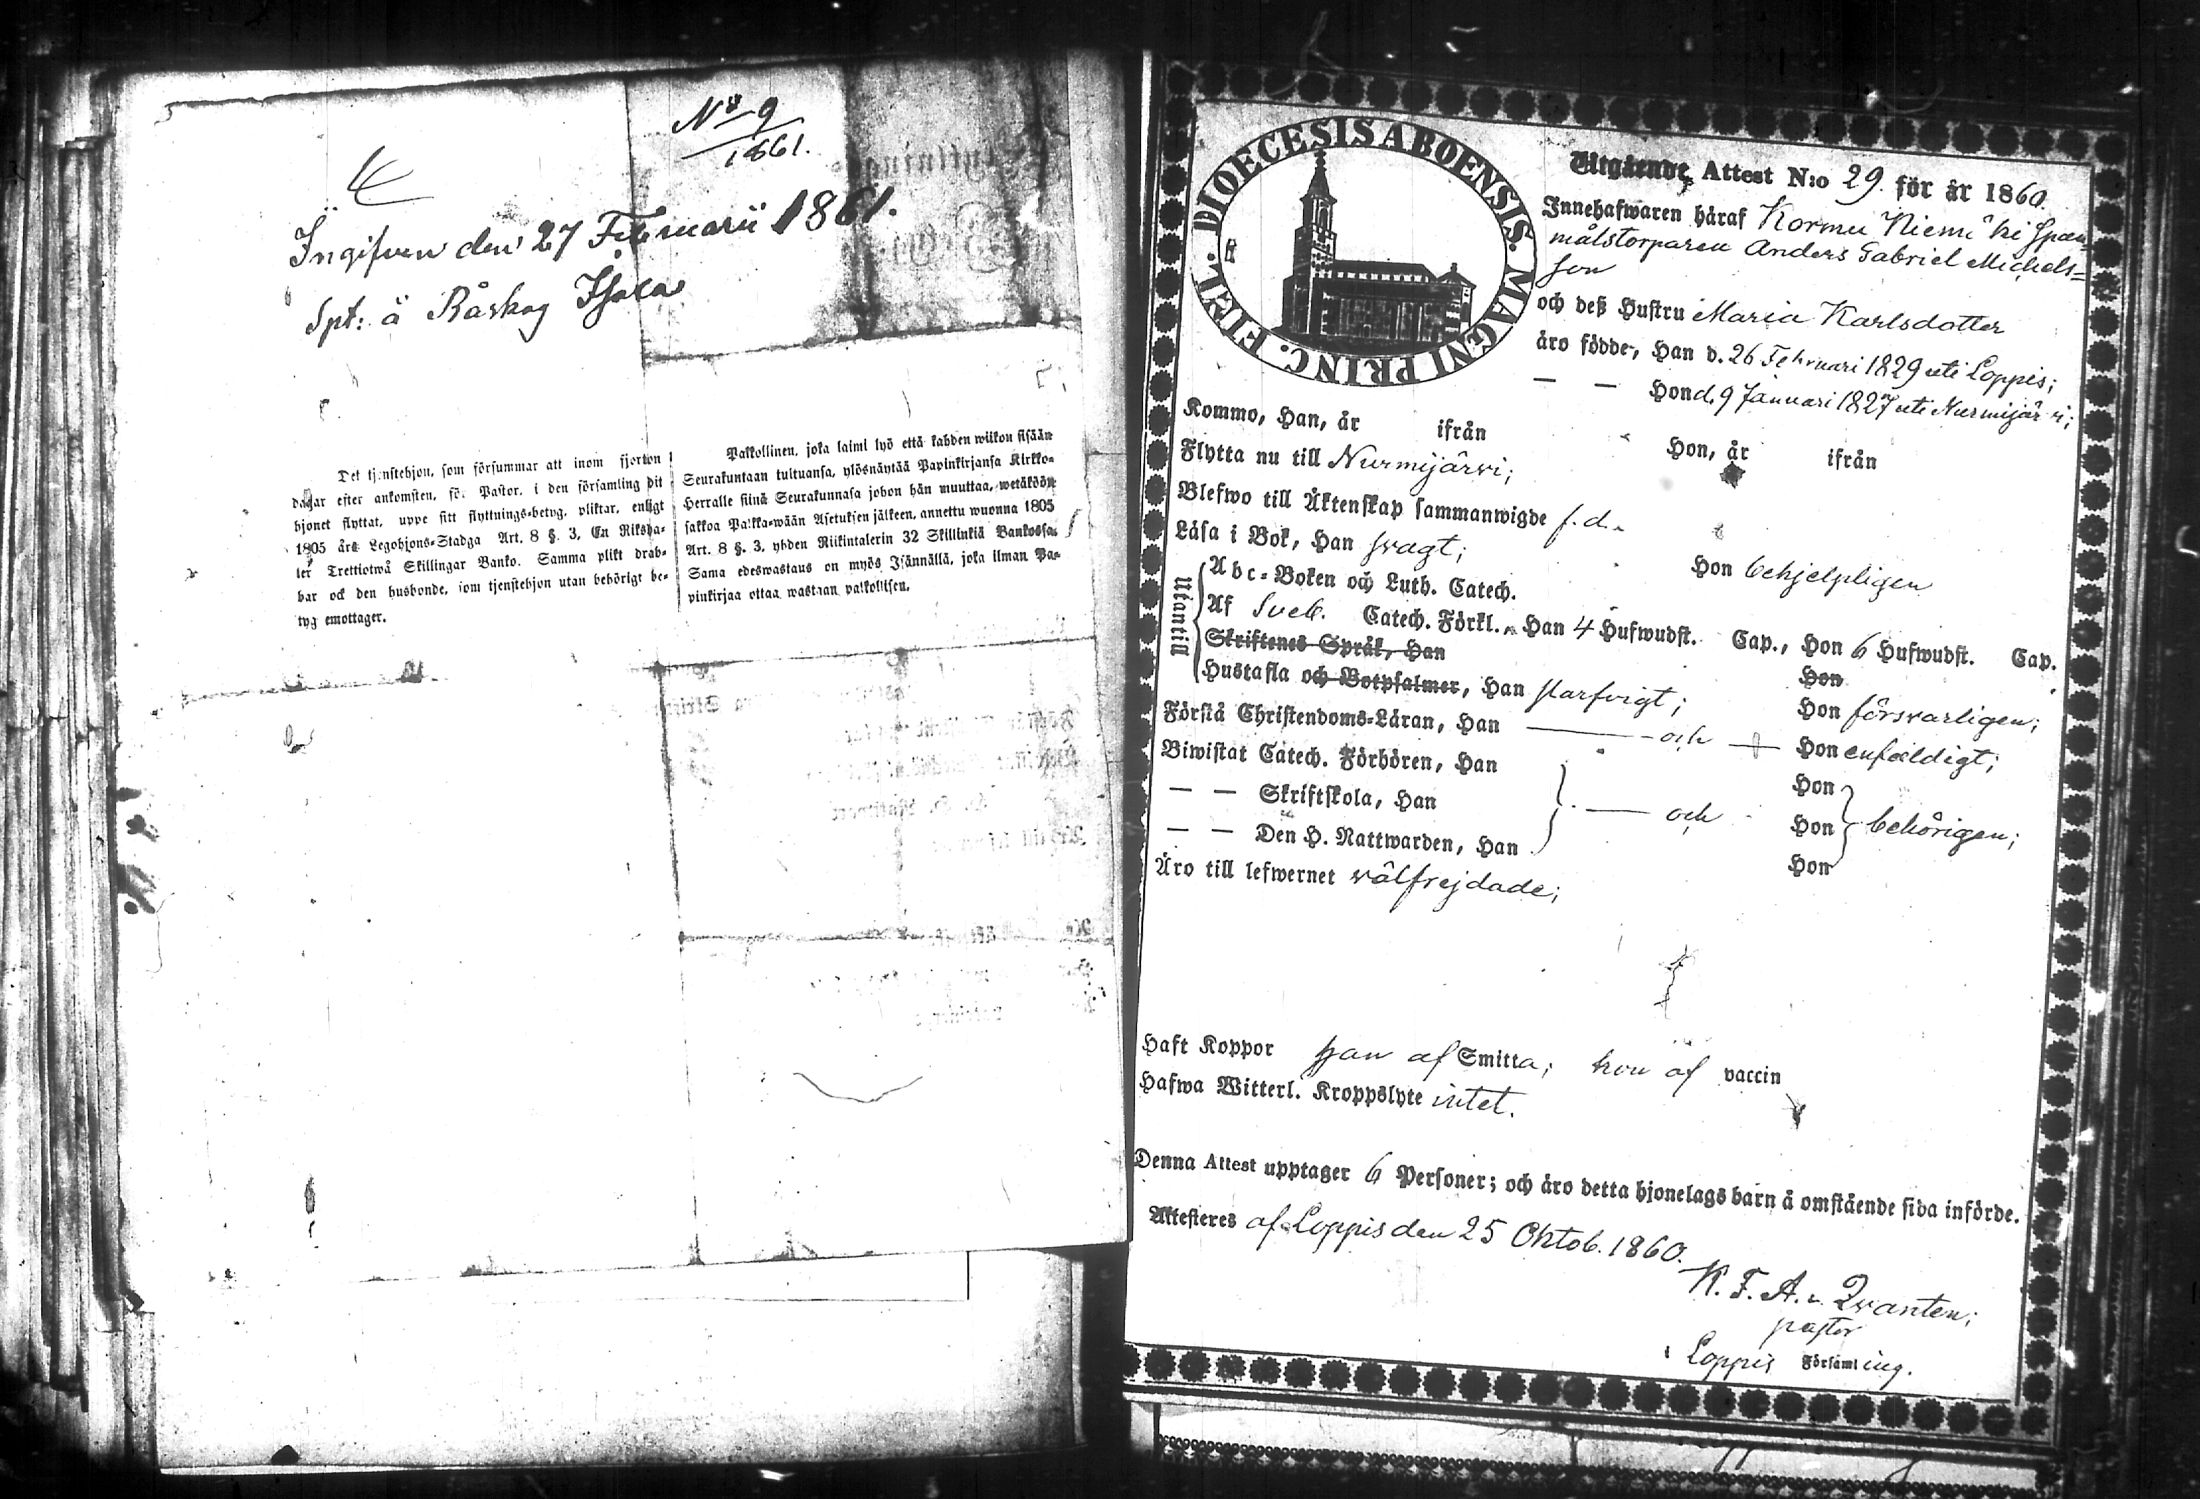 No 9
1861.
Ingifven den 27 Februarii 1861.
Spt: å Råskog
Det tjenstehjon, som försummar att inom fjorton
dagar efter ankomsten, för Pastor, i den församling dit
hjonet flyttat, uppte sitt flyttnings-betyg, pliktar, enligt
1805 års Legohjons-Stadga Art. 8 §. 3, En Riksda-
ler Trettiotwå Skillingar Banko. Samma plikt drab-
bar ock den husbonde, som tjenstehjon utan behörigt be-
tyg emottager.
Palkollinen, joka laimi lyö että kahden wiikon sisään
Seurakuntaan tultuansa, ylösnäyttää Papinkirjansa Kirkko-
Herralle siinä Seurakunnasa johon hän muuttaa, wetäköön
sakkoa Palkka-wään Asetuksen jälkeen, annettu wuonna 1805
Art. 8 §. 3, yhden Riikintalerin 32 Skillinkiä Bankossa.
Sama edeswastaus on myös Isännällä, joka ilman Pa-
pinkirjaa ottaa wastaan palkollisen.
DIOECESIS ABOENSIS. MAGNI PRINC. FINL.
Utgående Attest N:o 29. för år 1860.
Innehafwaren häraf Kormu Niemi
målstorparen Anders Gabriel Michels=
son
och deß Hustru Maria Karlsdotter
äro födde, Han d. 26 Februari 1829 uti Loppis;
— — Hon d. 9 Januari 1827 uti Nurmijärvi;
Kommo, Han, år ifrån Hon, år ifrån
Flytta nu till Nurmijärvi;
Blefwo till Äktenskap sammanwigde f. d.
Läsa i Bok, Han svagt; Hon behjelpligen
Utantill
Abc-Boken och Luth. Catech.
Af Sveb. Catech. Förkl., Han 4 Hufwudst. Cap., Hon 6 Hufwudst. Cap.
Skriftenes Språk, Han Hon
Hustafla och Botpsalmer, Han starfvigt; Hon försvarligen;
Förstå Christendoms-Läran, Han — och — Hon enfaldigt;
Biwistat Catech. Förhören, Han Hon
— — Skriftskola, Han — och Hon behörigen;
— — Den H. Nattwarden, Han Hon
Äro till lefwernet välfrejdade;
Haft Koppor han af Smitta; hon af vaccin
Hafwa Witterl. Kroppslyte intet.
Denna Attest upptager 6 Personer; och äro detta hjonelags barn å omstående sida införde.
Attesteres af Loppis den 25 Oktob. 1860.
K. F. A. v. Qvanten;
pastor
i Loppis Församling.